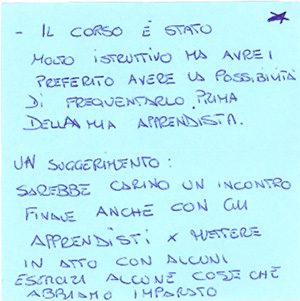 - IL CORSO È STATO
MOLTO ISTRUTTIVO MA AVREI
PREFERITO AVERE LA POSSIBILITÀ
DI FREQUENTARLO PRIMA
DELLA MIA APPRENDISTA.
UN SUGGERIMENTO:
SAREBBE CARINO UN INCONTRO
FINALE ANCHE CON GLI
APPRENDISTI X METTERE
IN ATTO CON ALCUNI
ESERCIZI ALCUNE COSE CHE
ABBIAMO IMPARATO